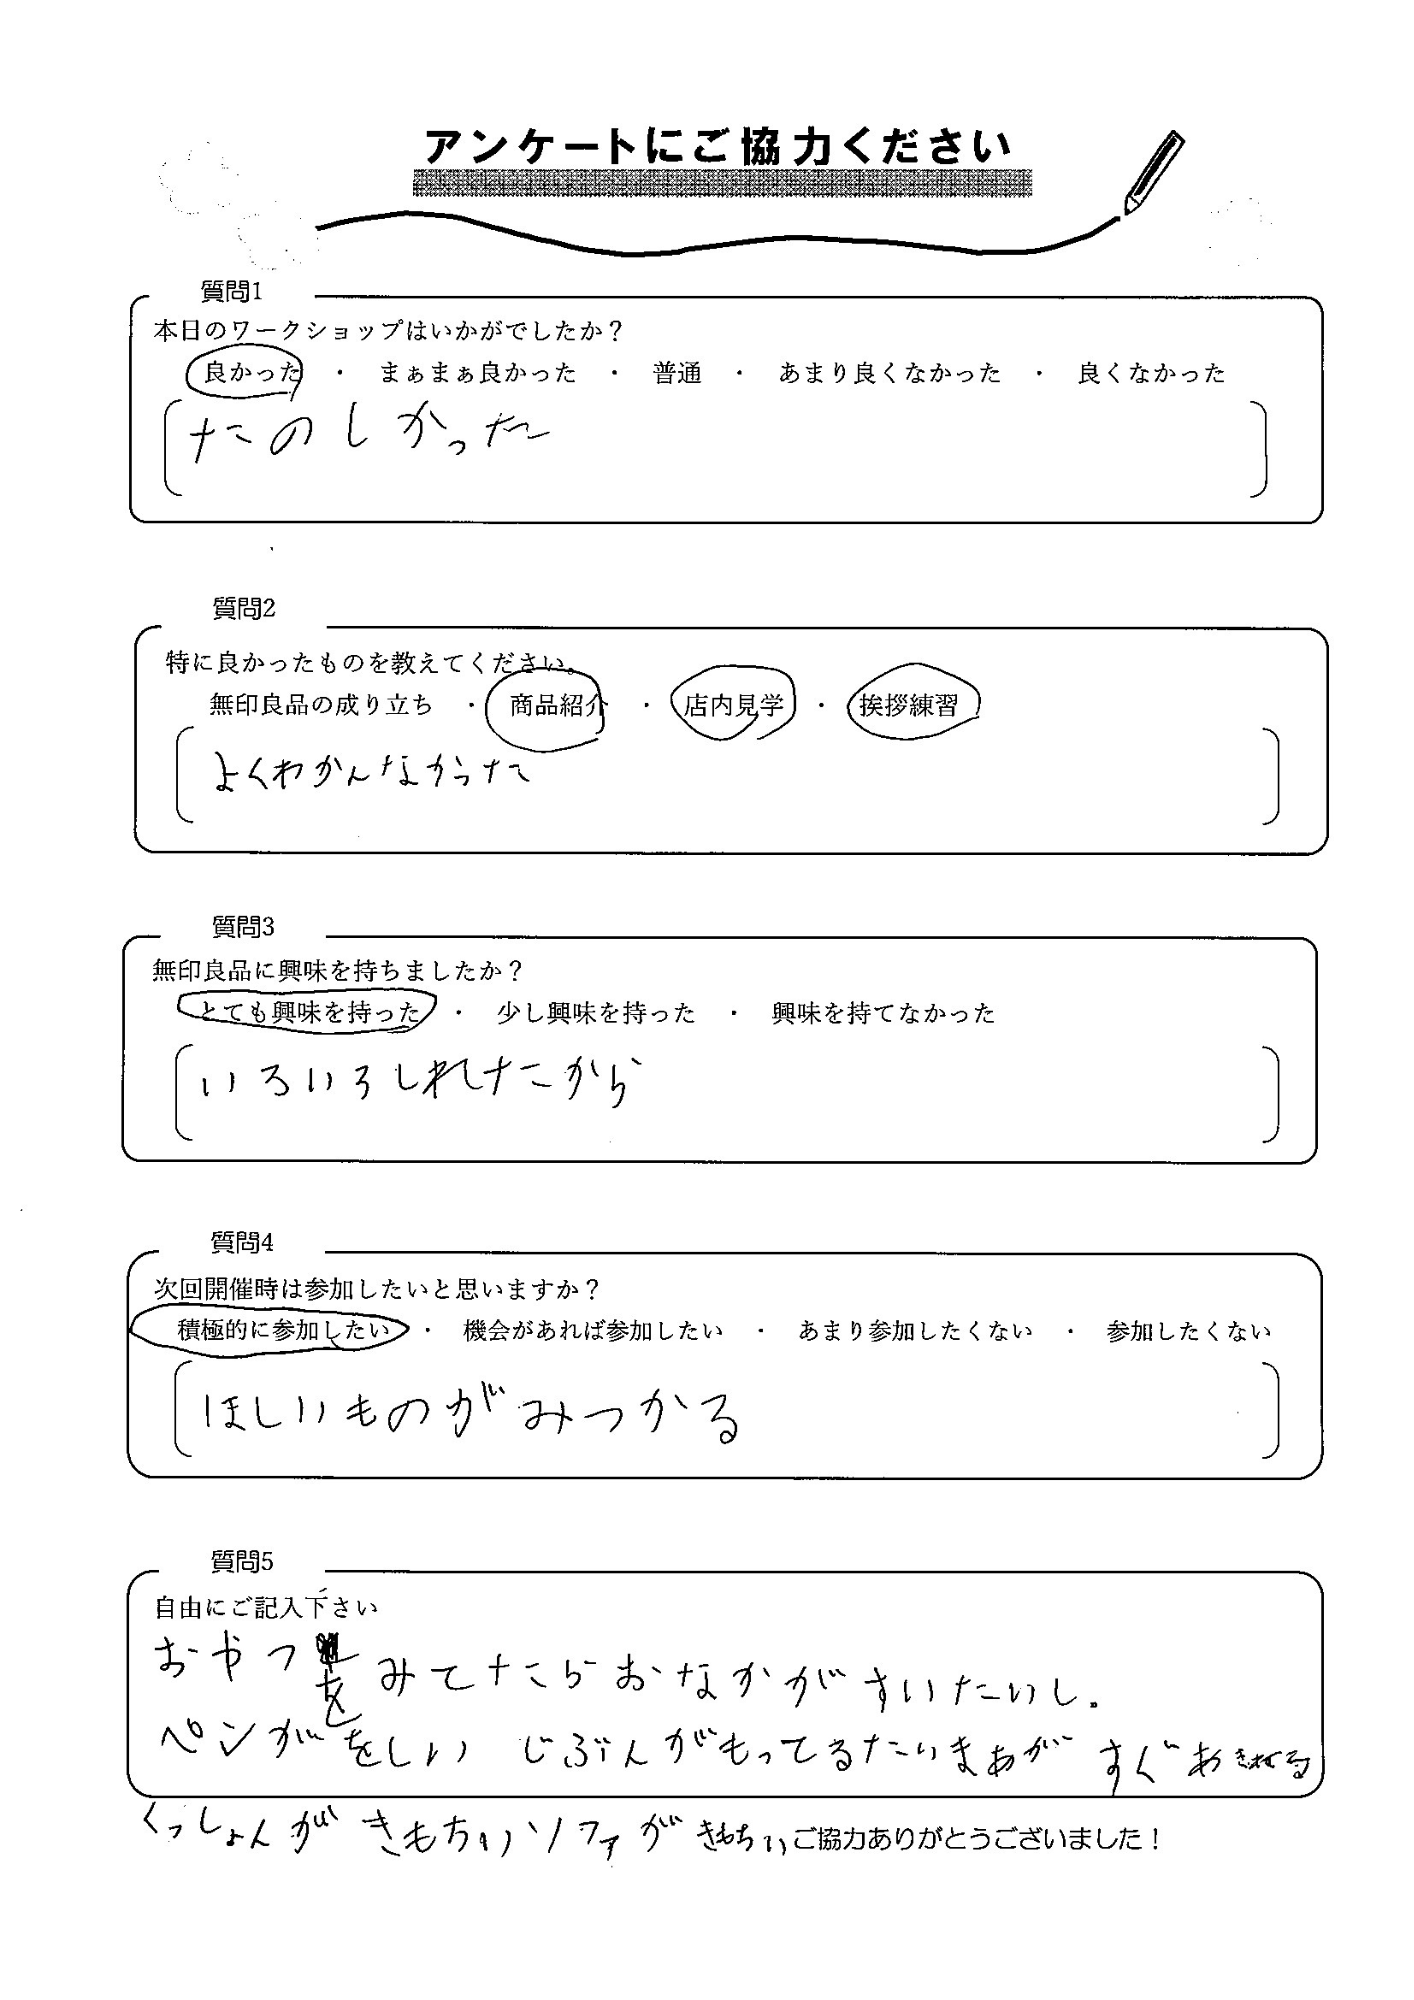 アンケートにご協力ください
質問1
本日のワークショップはいかがでしたか？
良かった ・ まぁまぁ良かった ・ 普通 ・ あまり良くなかった ・ 良くなかった
たのしかった
質問2
特に良かったものを教えてください。
無印良品の成り立ち ・ 商品紹介 ・ 店内見学 ・ 挨拶練習
よくわかんなかった
質問3
無印良品に興味を持ちましたか？
とても興味を持った ・ 少し興味を持った ・ 興味を持てなかった
いろいろしれたから
質問4
次回開催時は参加したいと思いますか？
積極的に参加したい ・ 機会があれば参加したい ・ あまり参加したくない ・ 参加したくない
ほしいものがみつかる
質問5
自由にご記入下さい
おやつをみてたらおなかがすいたいし.
ペンがをしい じぶんがもってるたいまあが すぐ
くっしょんが きもちいソファが きもちい
ご協力ありがとうございました！